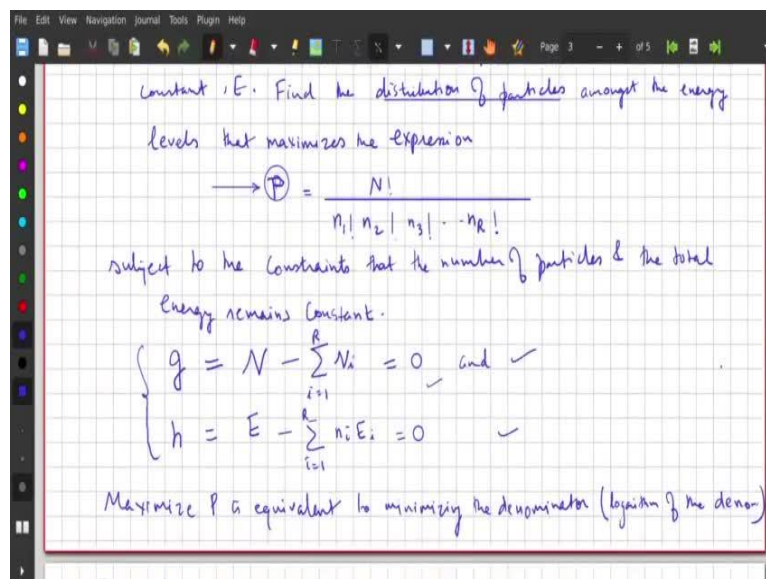 File Edit View Navigation Journal Tools Plugin Help
Page 3 - + of 5
constant, E. Find the distribution of particles amongst the energy
levels that maximizes the expression
→ P = N! / n₁! n₂! n₃! ... n_R!
subject to the constraints that the number of particles & the total
energy remains constant.
g = N - ∑_{i=1}^{R} N_i = 0 and ✓
h = E - ∑_{i=1}^{R} n_i E_i = 0 ✓
Maximize P is equivalent to minimizing the denominator (logarithm of the denom)